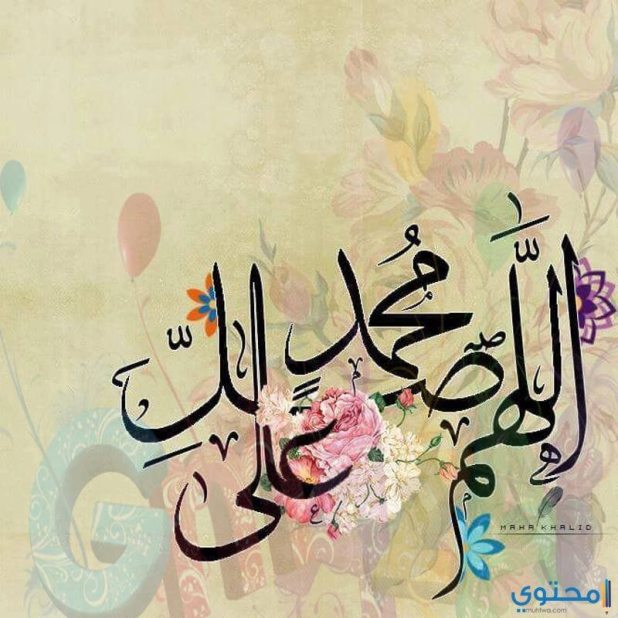 اللَّهم صلِّ على مُحمد
MAHA KHALID
محتوي
muhtwa.com